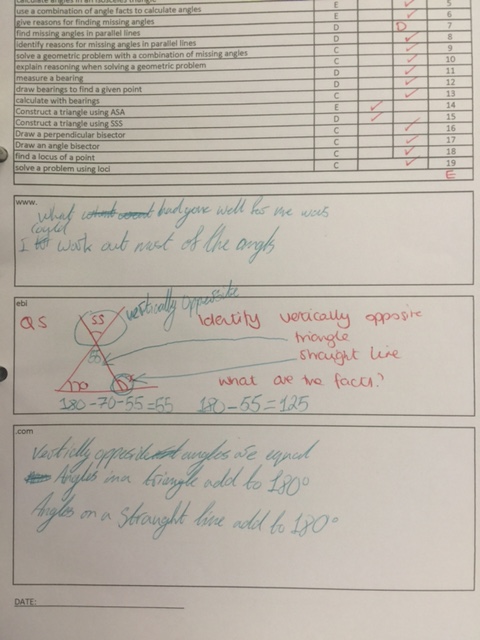 use a combination of angle facts to calculate angles E 6
give reasons for finding missing angles D D 7
find missing angles in parallel lines D 8
identify reasons for missing angles in parallel lines C 9
solve a geometric problem with a combination of missing angles C 10
explain reasoning when solving a geometric problem D 11
measure a bearing D 12
draw bearings to find a given point C 13
calculate with bearings E 14
Construct a triangle using ASA D 15
Construct a triangle using SSS C 16
Draw a perpendicular bisector C 17
Draw an angle bisector C 18
find a locus of a point C 19
solve a problem using loci E
www.
What had gone well for me was
I could work out most of the angls
ebi
Q5 55 vertically opposite identify vertically opposite
triangle
55 straught line
70 what are the facts?
180-70-55=55 180-55=125
.com
Vertically opposide angles are equal
Angles in a triangle add to 180°
Angles on a straught line add to 180°
DATE: